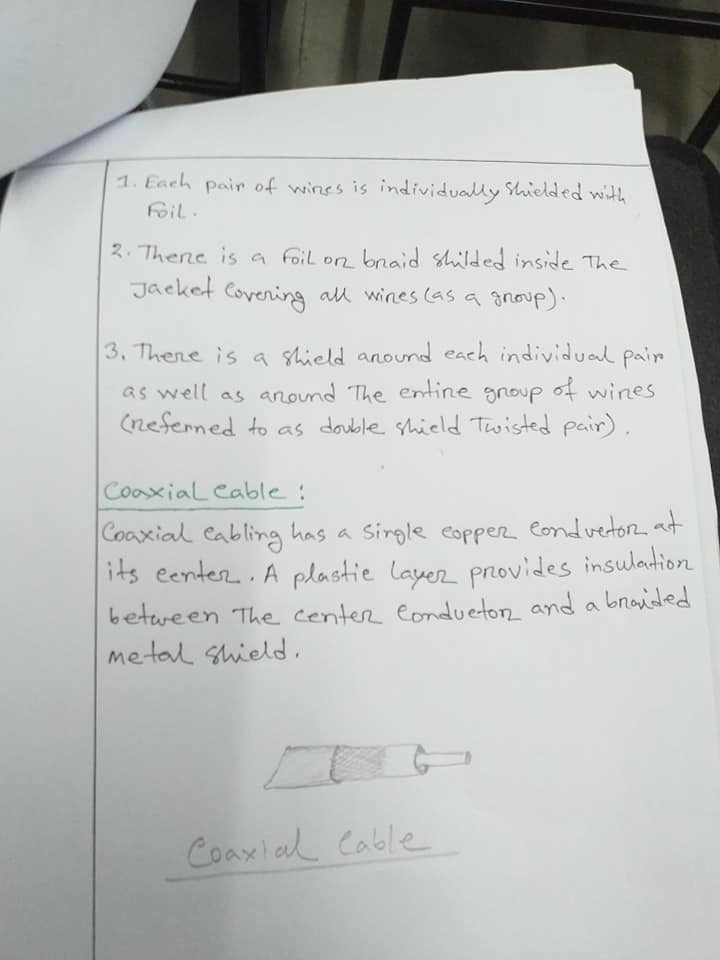 1. Each pair of wires is individually Shielded with
Foil.
2. There is a foil or braid shilded inside The
Jacket Covering all wires (as a group).
3. There is a shield around each individual pair
as well as around The entire group of wires
(referred to as double shield Twisted pair).
Coaxial Cable :
Coaxial Cabling has a Single copper Conductor at
its center. A plastic layer provides insulation
between The center Conductor and a braided
metal Shield.
Coaxial Cable